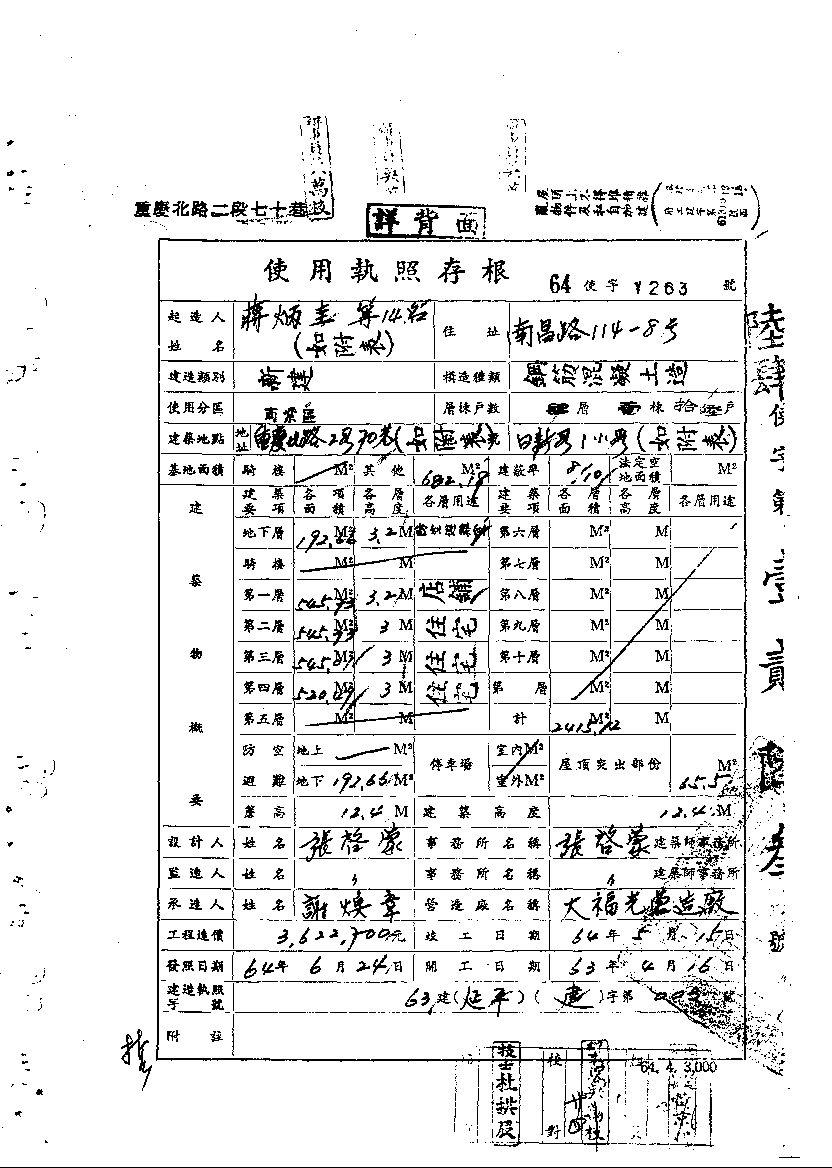 重慶北路二段七十巷
詳背面
使用執照存根
64 使字 1263 號
起造人姓名 蔣炳圭等14名(如附表) 住址 南昌路114-8号
建造類別 新建 構造種類 鋼筋混凝土造
使用分區 商業區 層棟戶數 層 棟 拾 戶
建築地點 地址 重慶北路2段70巷(如附表) (如附表)
基地面積 騎樓 M² 其他 682.18 M² 建蔽率 8/10 法定空地面積 M²
建築物概要
建築要項 各項面積 各層高度 各層用途 建築要項 各層面積 各層高度 各層用途
地下層 192.66 M² 3.2 M 第六層 M² M
騎樓 M² M 第七層 M² M
第一層 545.93 M² 3.2 M 店鋪 第八層 M² M
第二層 545.93 M² 3 M 住宅 第九層 M² M
第三層 M² 3 M 住宅 第十層 M² M
第四層 M² 3 M 住宅 第 層 M² M
第五層 M² M 計 2415.12 M²
防空避難 地上 M² 停車場 室內M² 屋頂突出部份 65.5 M²
地下 192.66 M² 室外M²
簷高 12.4 M 建築高度 12.4 M
設計人 姓名 張啓蒙 事務所名稱 張啓蒙 建築師事務所
監造人 姓名 〃 事務所名稱 〃 建築師事務所
承造人 姓名 謝煥章 營造廠名稱 大福光營造廠
工程造價 3,622,700元 竣工日期 64年5月15日
發照日期 64年6月24日 開工日期 63年4月16日
建造執照字號 63建(延平)(建)字第 號
附註
64. 4. 3,000
技士杜拱辰
校對
陸肆使字第壹貳陸叁號